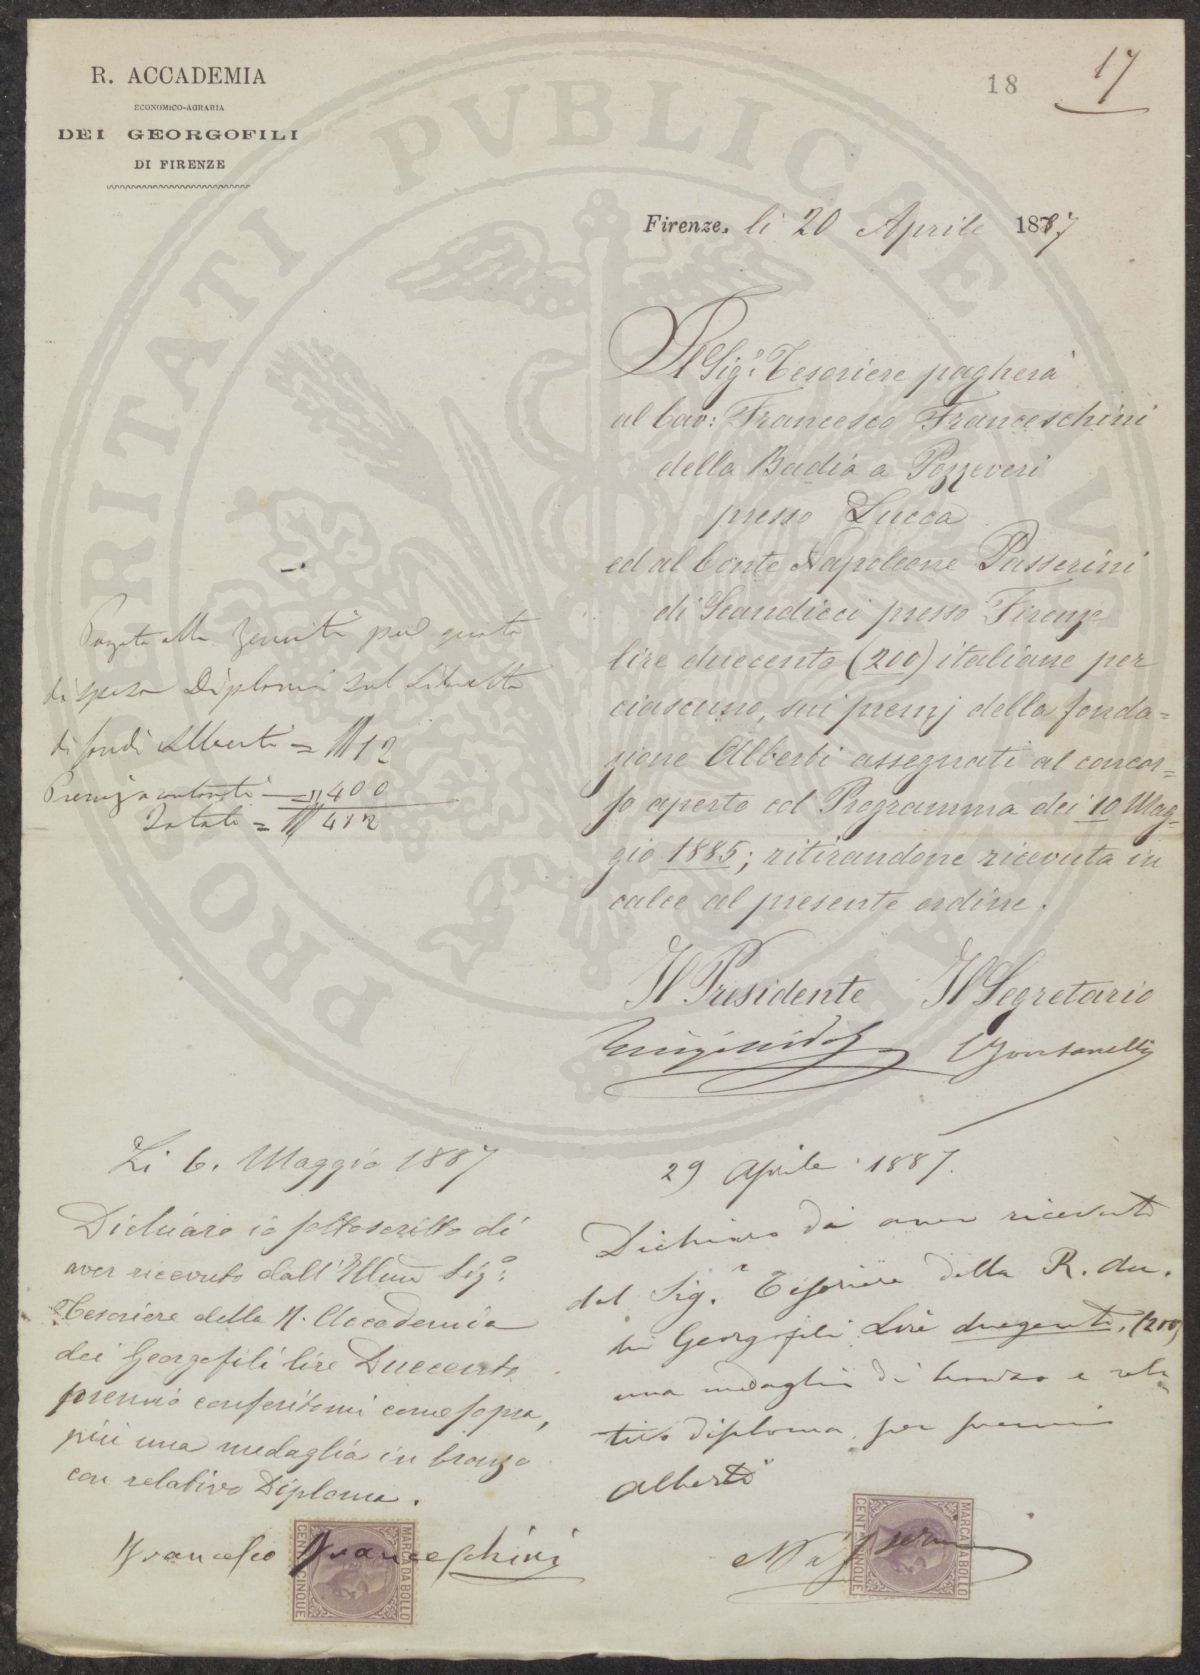 R. ACCADEMIA
ECONOMICO-AGRARIA
DEI GEORGOFILI
DI FIRENZE
18
17
Firenze, li 20 Aprile 1887
Il Sig.r Tesoriere pagherà
al Cav: Francesco Franceschini
della Badia a Pozzeveri
presso Lucca
ed al Conte Napoleone Passerini
di Scandicci presso Firenze
lire duecento (200) italiane per
ciascuno, sui premj della fonda=
zione Alberti assegnati al concor=
so aperto col Programma dei 10 Mag=
gio 1885; ritirandone ricevuta in
calce al presente ordine.
Il Presidente Il Segretario
C Fontanelli
Pagato alla per questa
di spesa Diplomi sul Libretto
di fondi Alberti = 12
Premi 400
Totale = 412
Li 6. Maggio 1887
Dichiaro io sottoscritto di
aver ricevuto dall'Illmo Sigo:
Tesoriere della R. Accademia
dei Georgofili lire Duecento
premio conferitomi come sopra,
più una medaglia in bronzo
con relativo Diploma.
Francesco Franceschini
29 Aprile 1887.
Dichiaro di aver ricevuto
dal Sig.r Tesoriere della R. Acc.
dei Georgofili Lire duegento, (200)
una medaglia di bronzo e rela
tivo diploma per premio
Alberti
N Passerini
MARCA DA BOLLO
CENT. CINQUE
MARCA DA BOLLO
CENT. CINQUE
PROSPERITATI PVBLICAE AVGENDAE